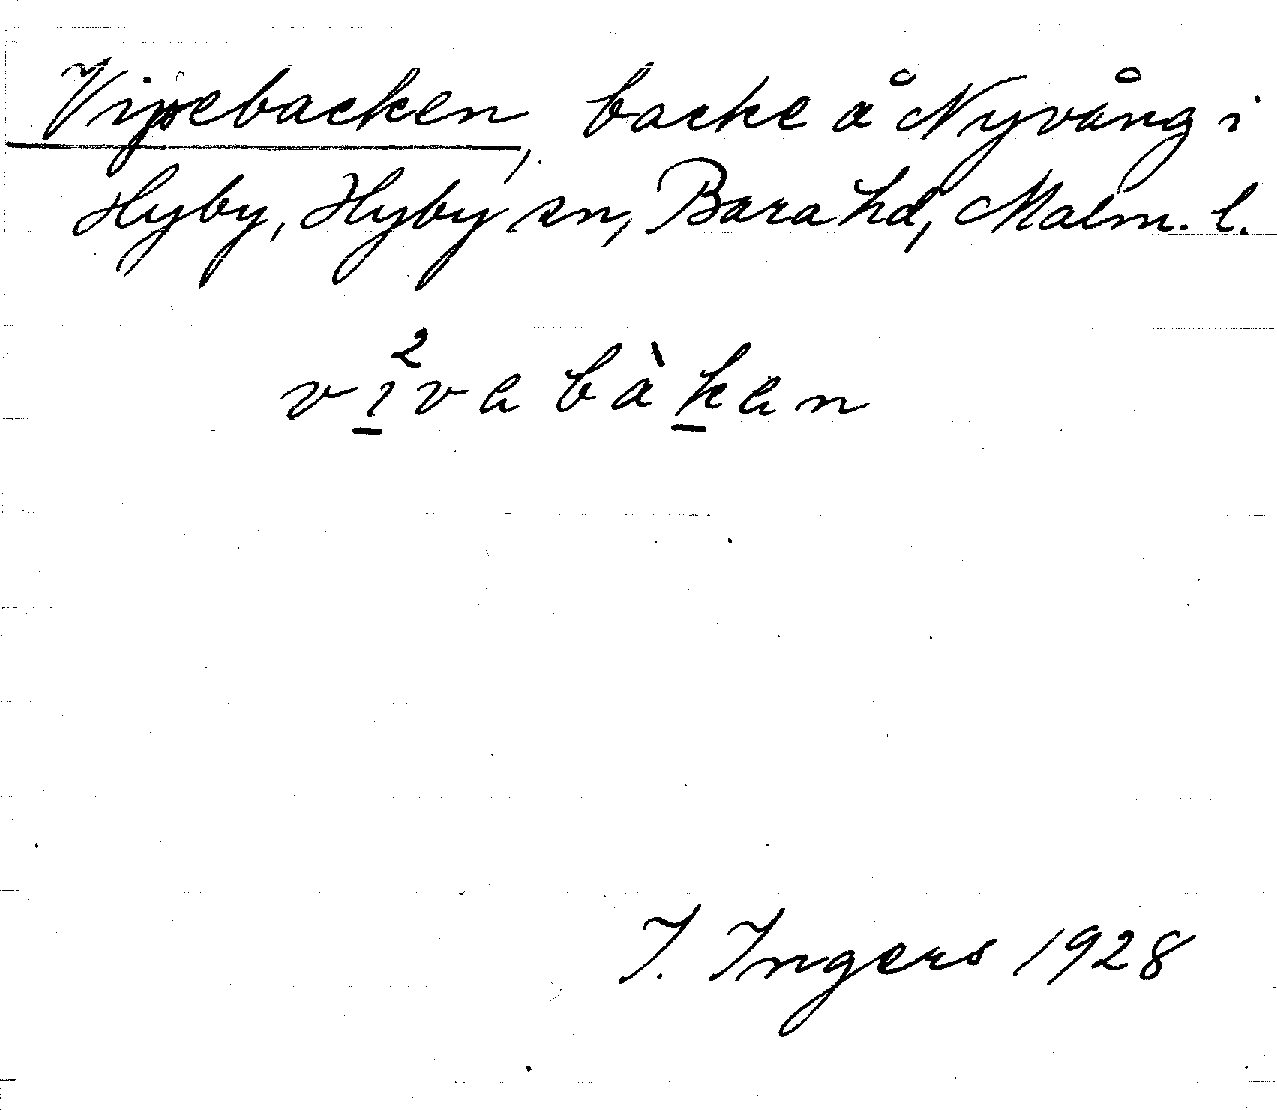 Vipebacken, backe å Nyvång i
Hyby, Hyby sn, Bara hd, Malm. l.
vi²vabàkan
I. Ingers 1928